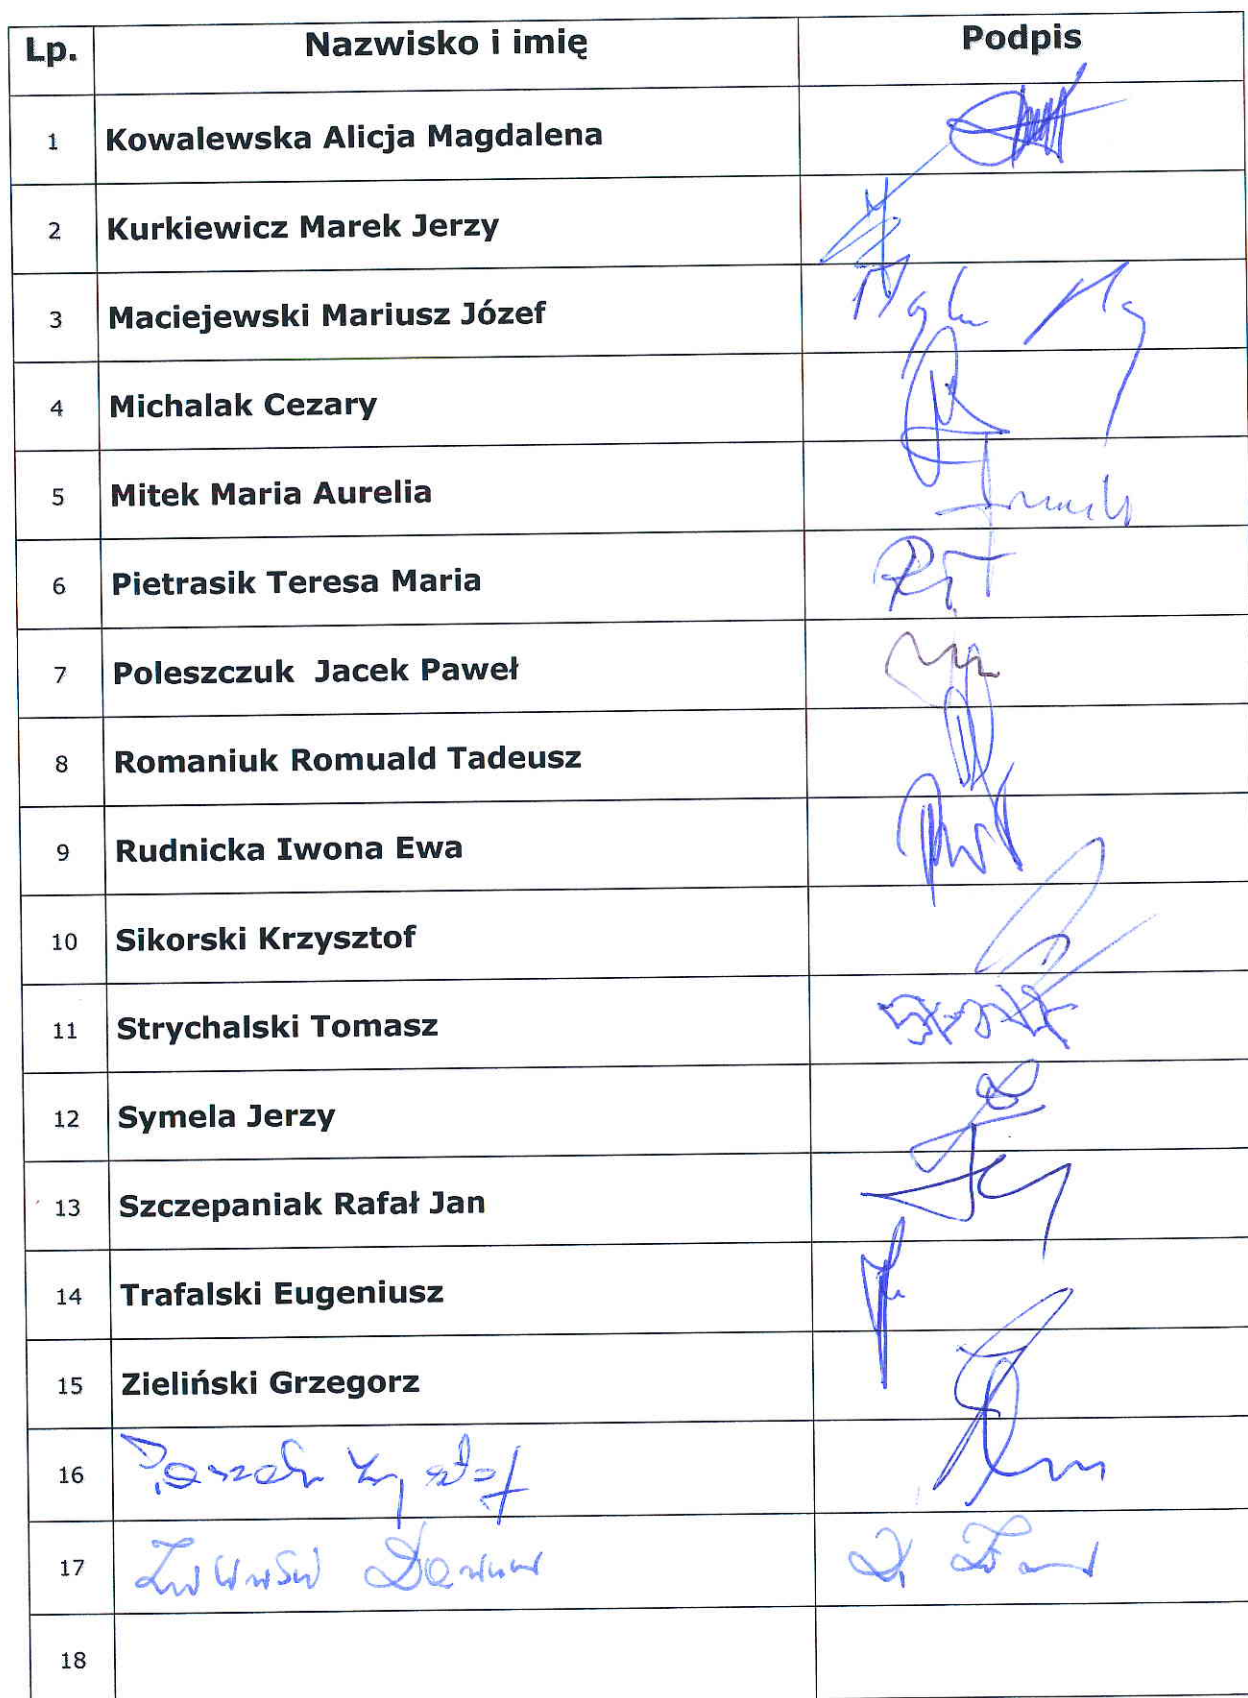 Lp. Nazwisko i imię Podpis
1 Kowalewska Alicja Magdalena
2 Kurkiewicz Marek Jerzy
3 Maciejewski Mariusz Józef
4 Michalak Cezary
5 Mitek Maria Aurelia
6 Pietrasik Teresa Maria
7 Poleszczuk Jacek Paweł
8 Romaniuk Romuald Tadeusz
9 Rudnicka Iwona Ewa
10 Sikorski Krzysztof
11 Strychalski Tomasz
12 Symela Jerzy
13 Szczepaniak Rafał Jan
14 Trafalski Eugeniusz
15 Zieliński Grzegorz
16
17
18